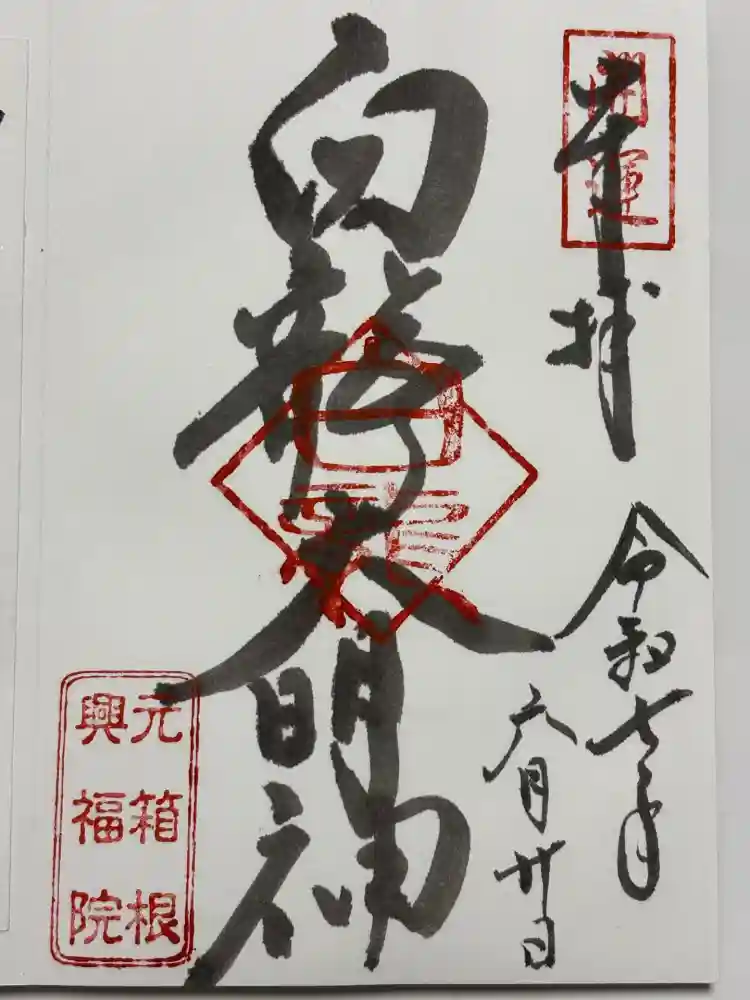 開運
奉拝
令和七年
六月廿日
白龍大明神
白龍
元箱根
興福院